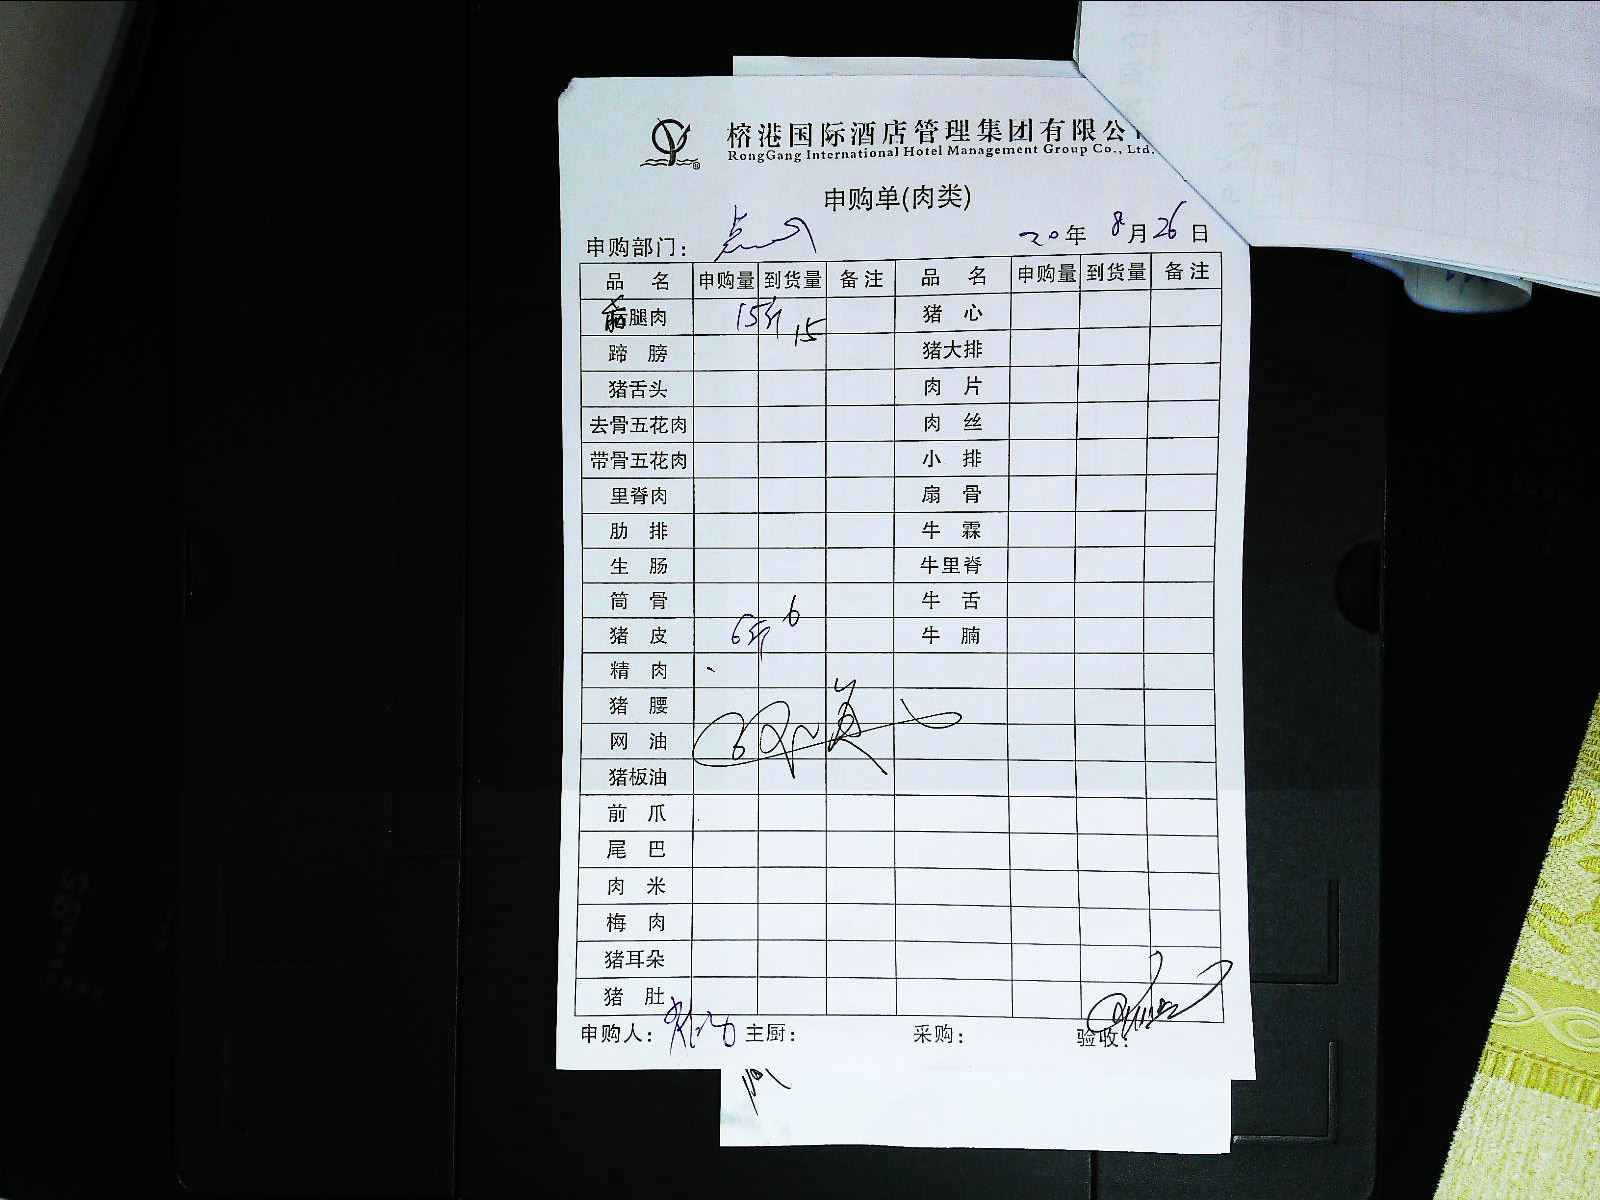 榕港国际酒店管理集团有限公
RongGang International Hotel Management Group Co., Ltd.
申购单(肉类)
申购部门: 点心
20年 8月26日
品 名 申购量 到货量 备注 品 名 申购量 到货量 备注
腿肉 15斤 15 猪 心
蹄 膀 猪大排
猪舌头 肉 片
去骨五花肉 肉 丝
带骨五花肉 小 排
里脊肉 扇 骨
肋 排 牛 霖
生 肠 牛里脊
筒 骨 牛 舌
猪 皮 6斤 6 牛 腩
精 肉
猪 腰
网 油
猪板油
前 爪
尾 巴
肉 米
梅 肉
猪耳朵
猪 肚
申购人: 主厨: 采购: 验收: